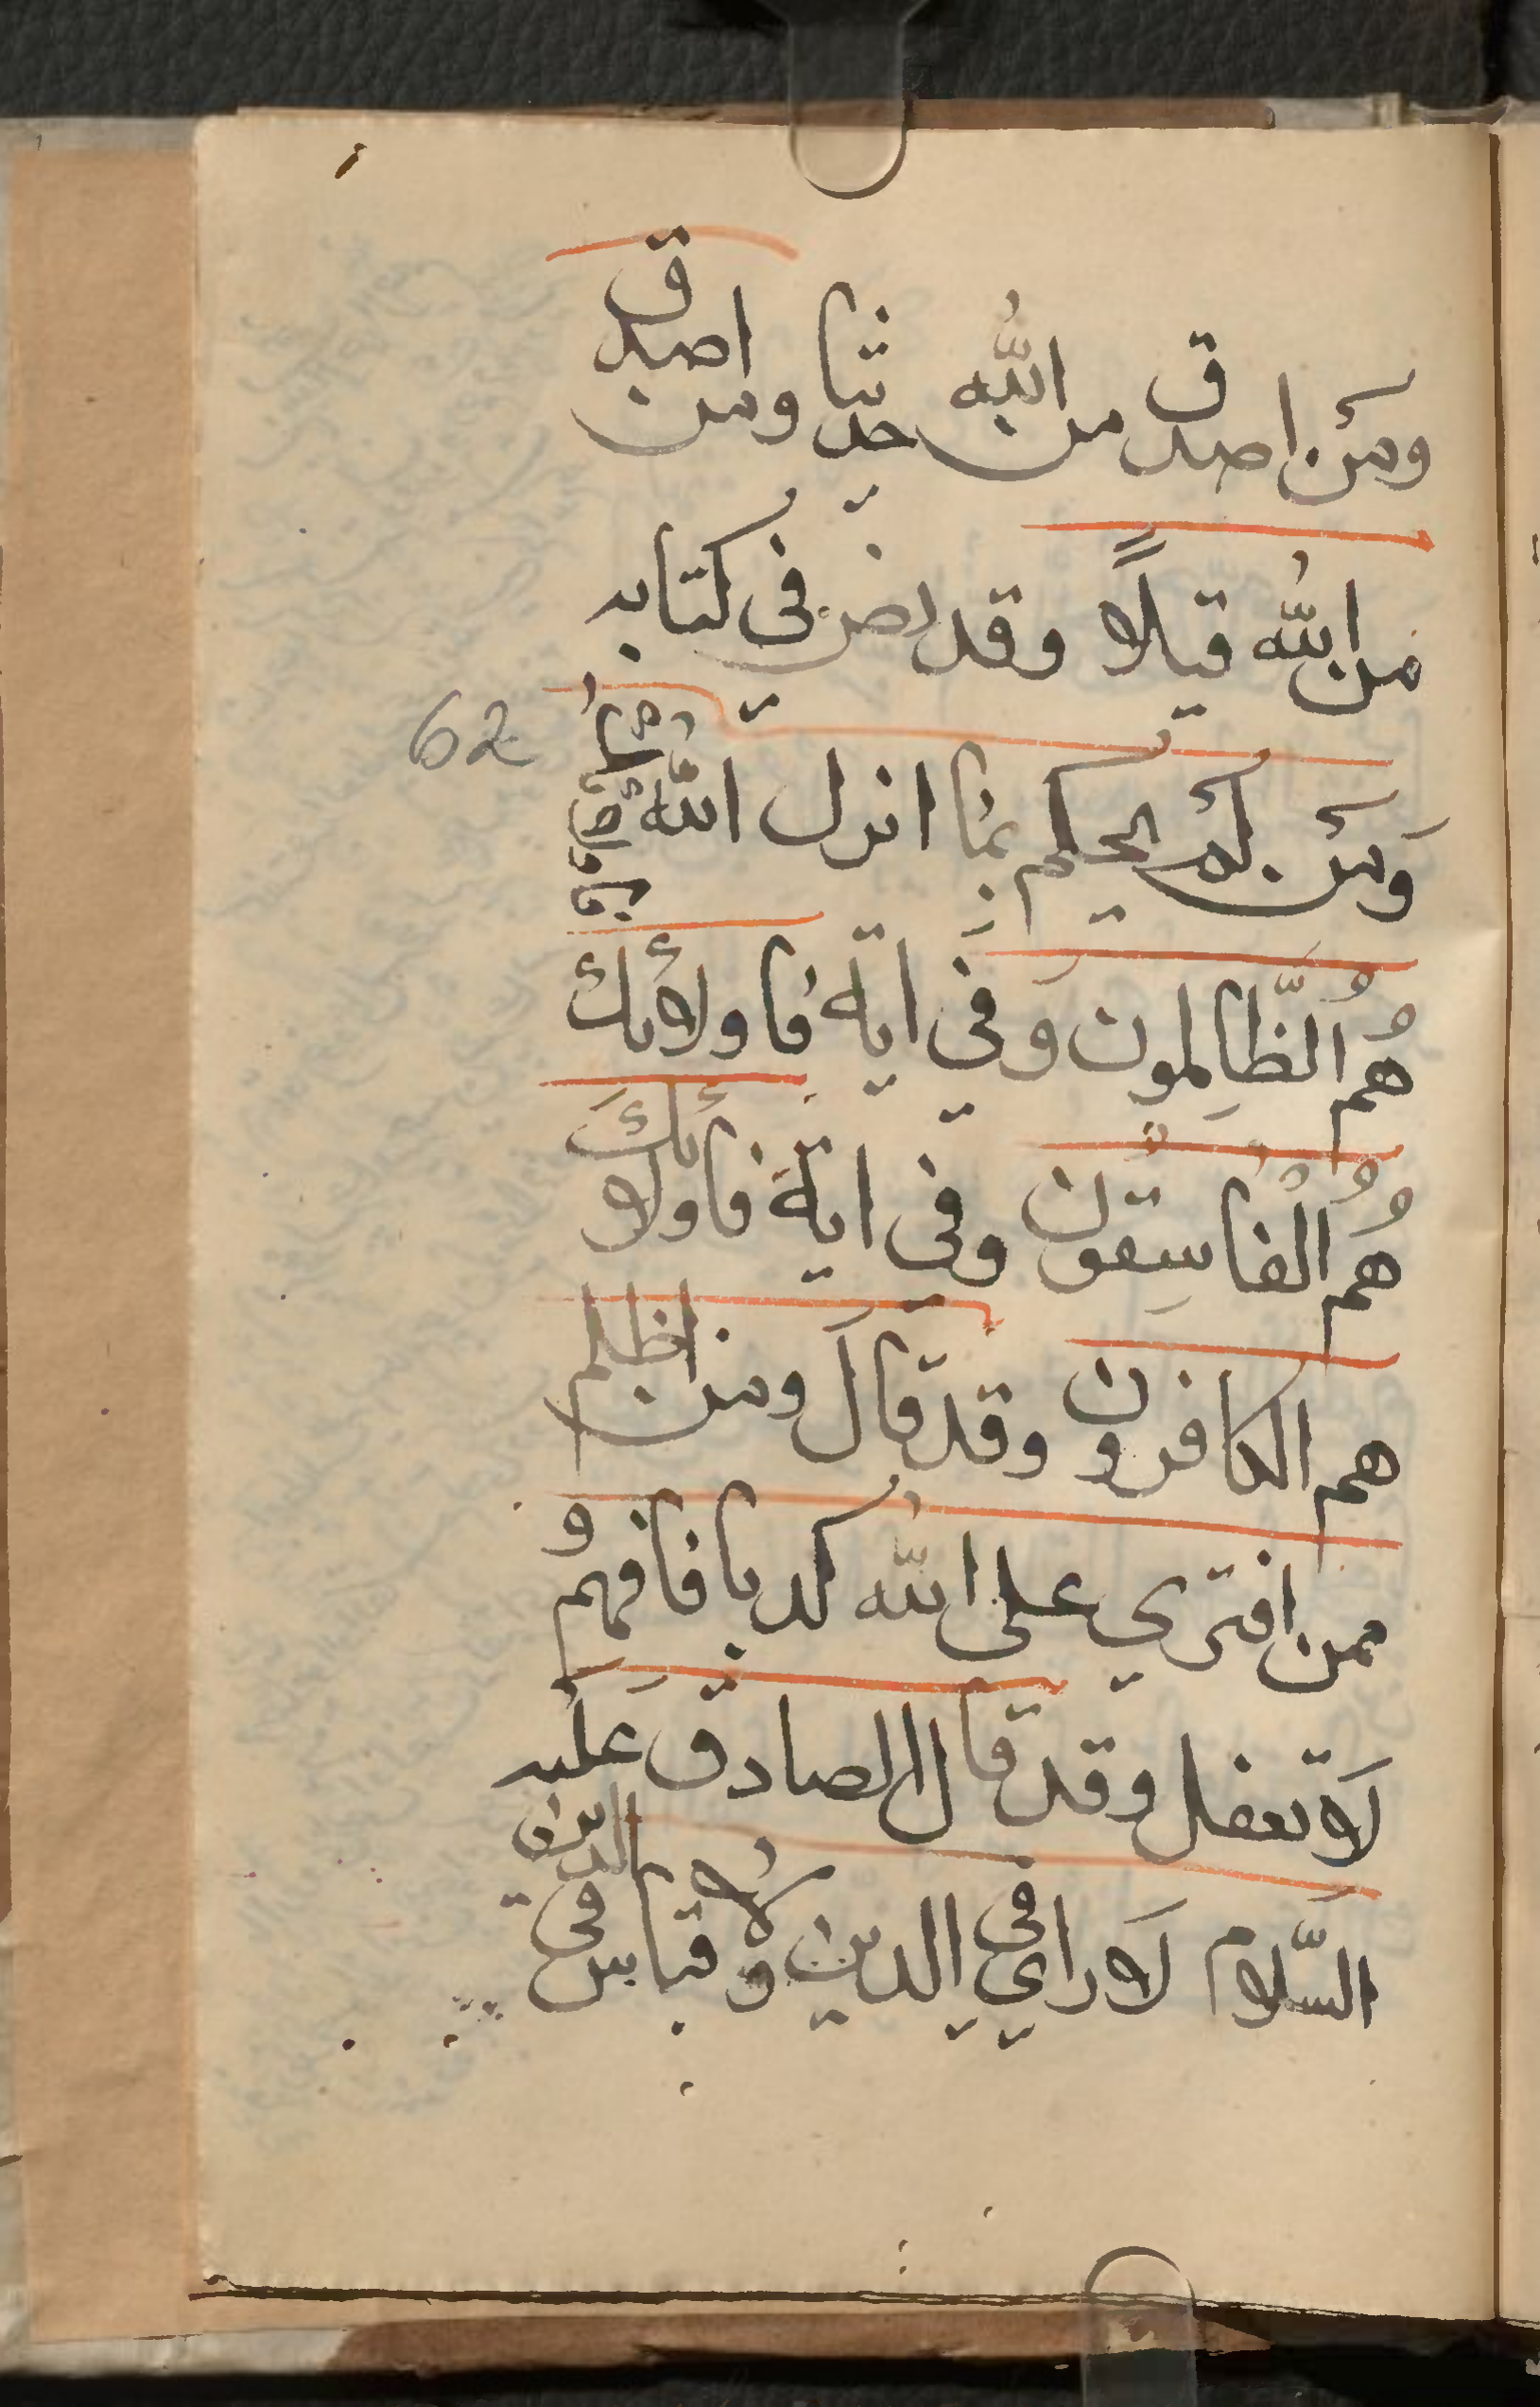 ومَن اصدق من الله حديثا ومن اصدق
من الله قيلاً وقد نص في كتابه
وَمَن لم يحكم بما انزل الله فاولئك
هُمُ الظَّالِمون وَفي اية فاولائك
هُمُ الْفاسِقُون وفي اية فاولائكَ
هم الكافرون وقد قالَ ومن اظلم
ممن افتري على الله كذبا فافهم و
لَا تغفل وقد قال الصادق عَليه
السَّلام لَا راي في الدين ولا قياس في الدين
62